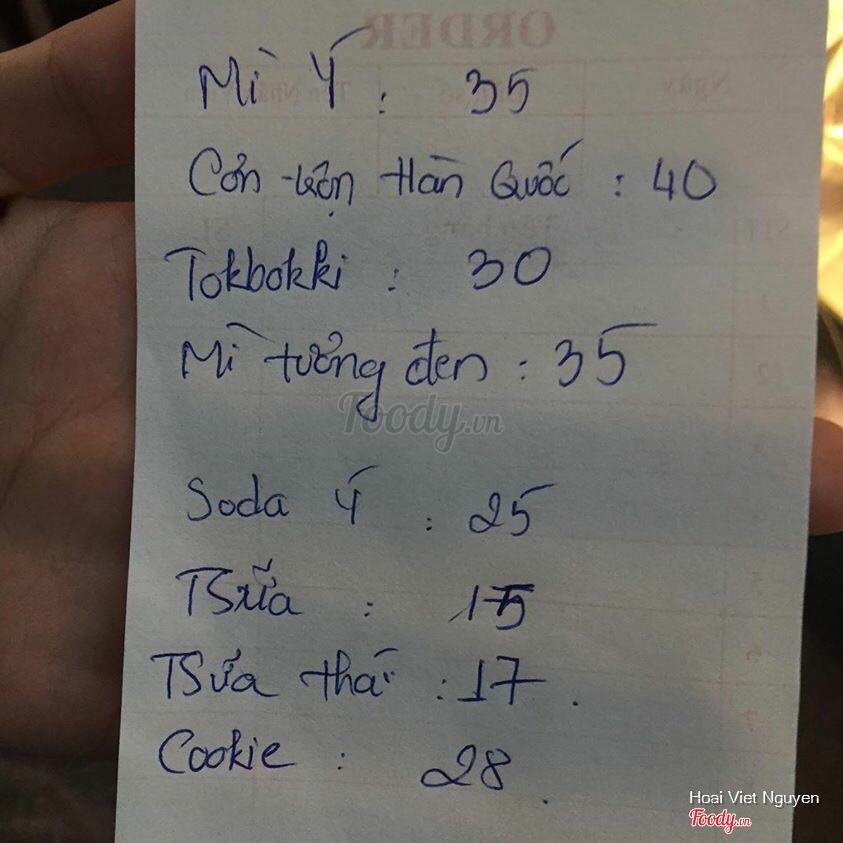 ORDER
Ngày
Mì Ý : 35
Cơm trộn Hàn Quốc : 40
Tokbokki : 30
Mì tương đen : 35
Foody.vn
Soda Ý : 25
TSữa : 15
TSữa thái : 17.
Cookie : 28.
Hoai Viet Nguyen
Foody.vn